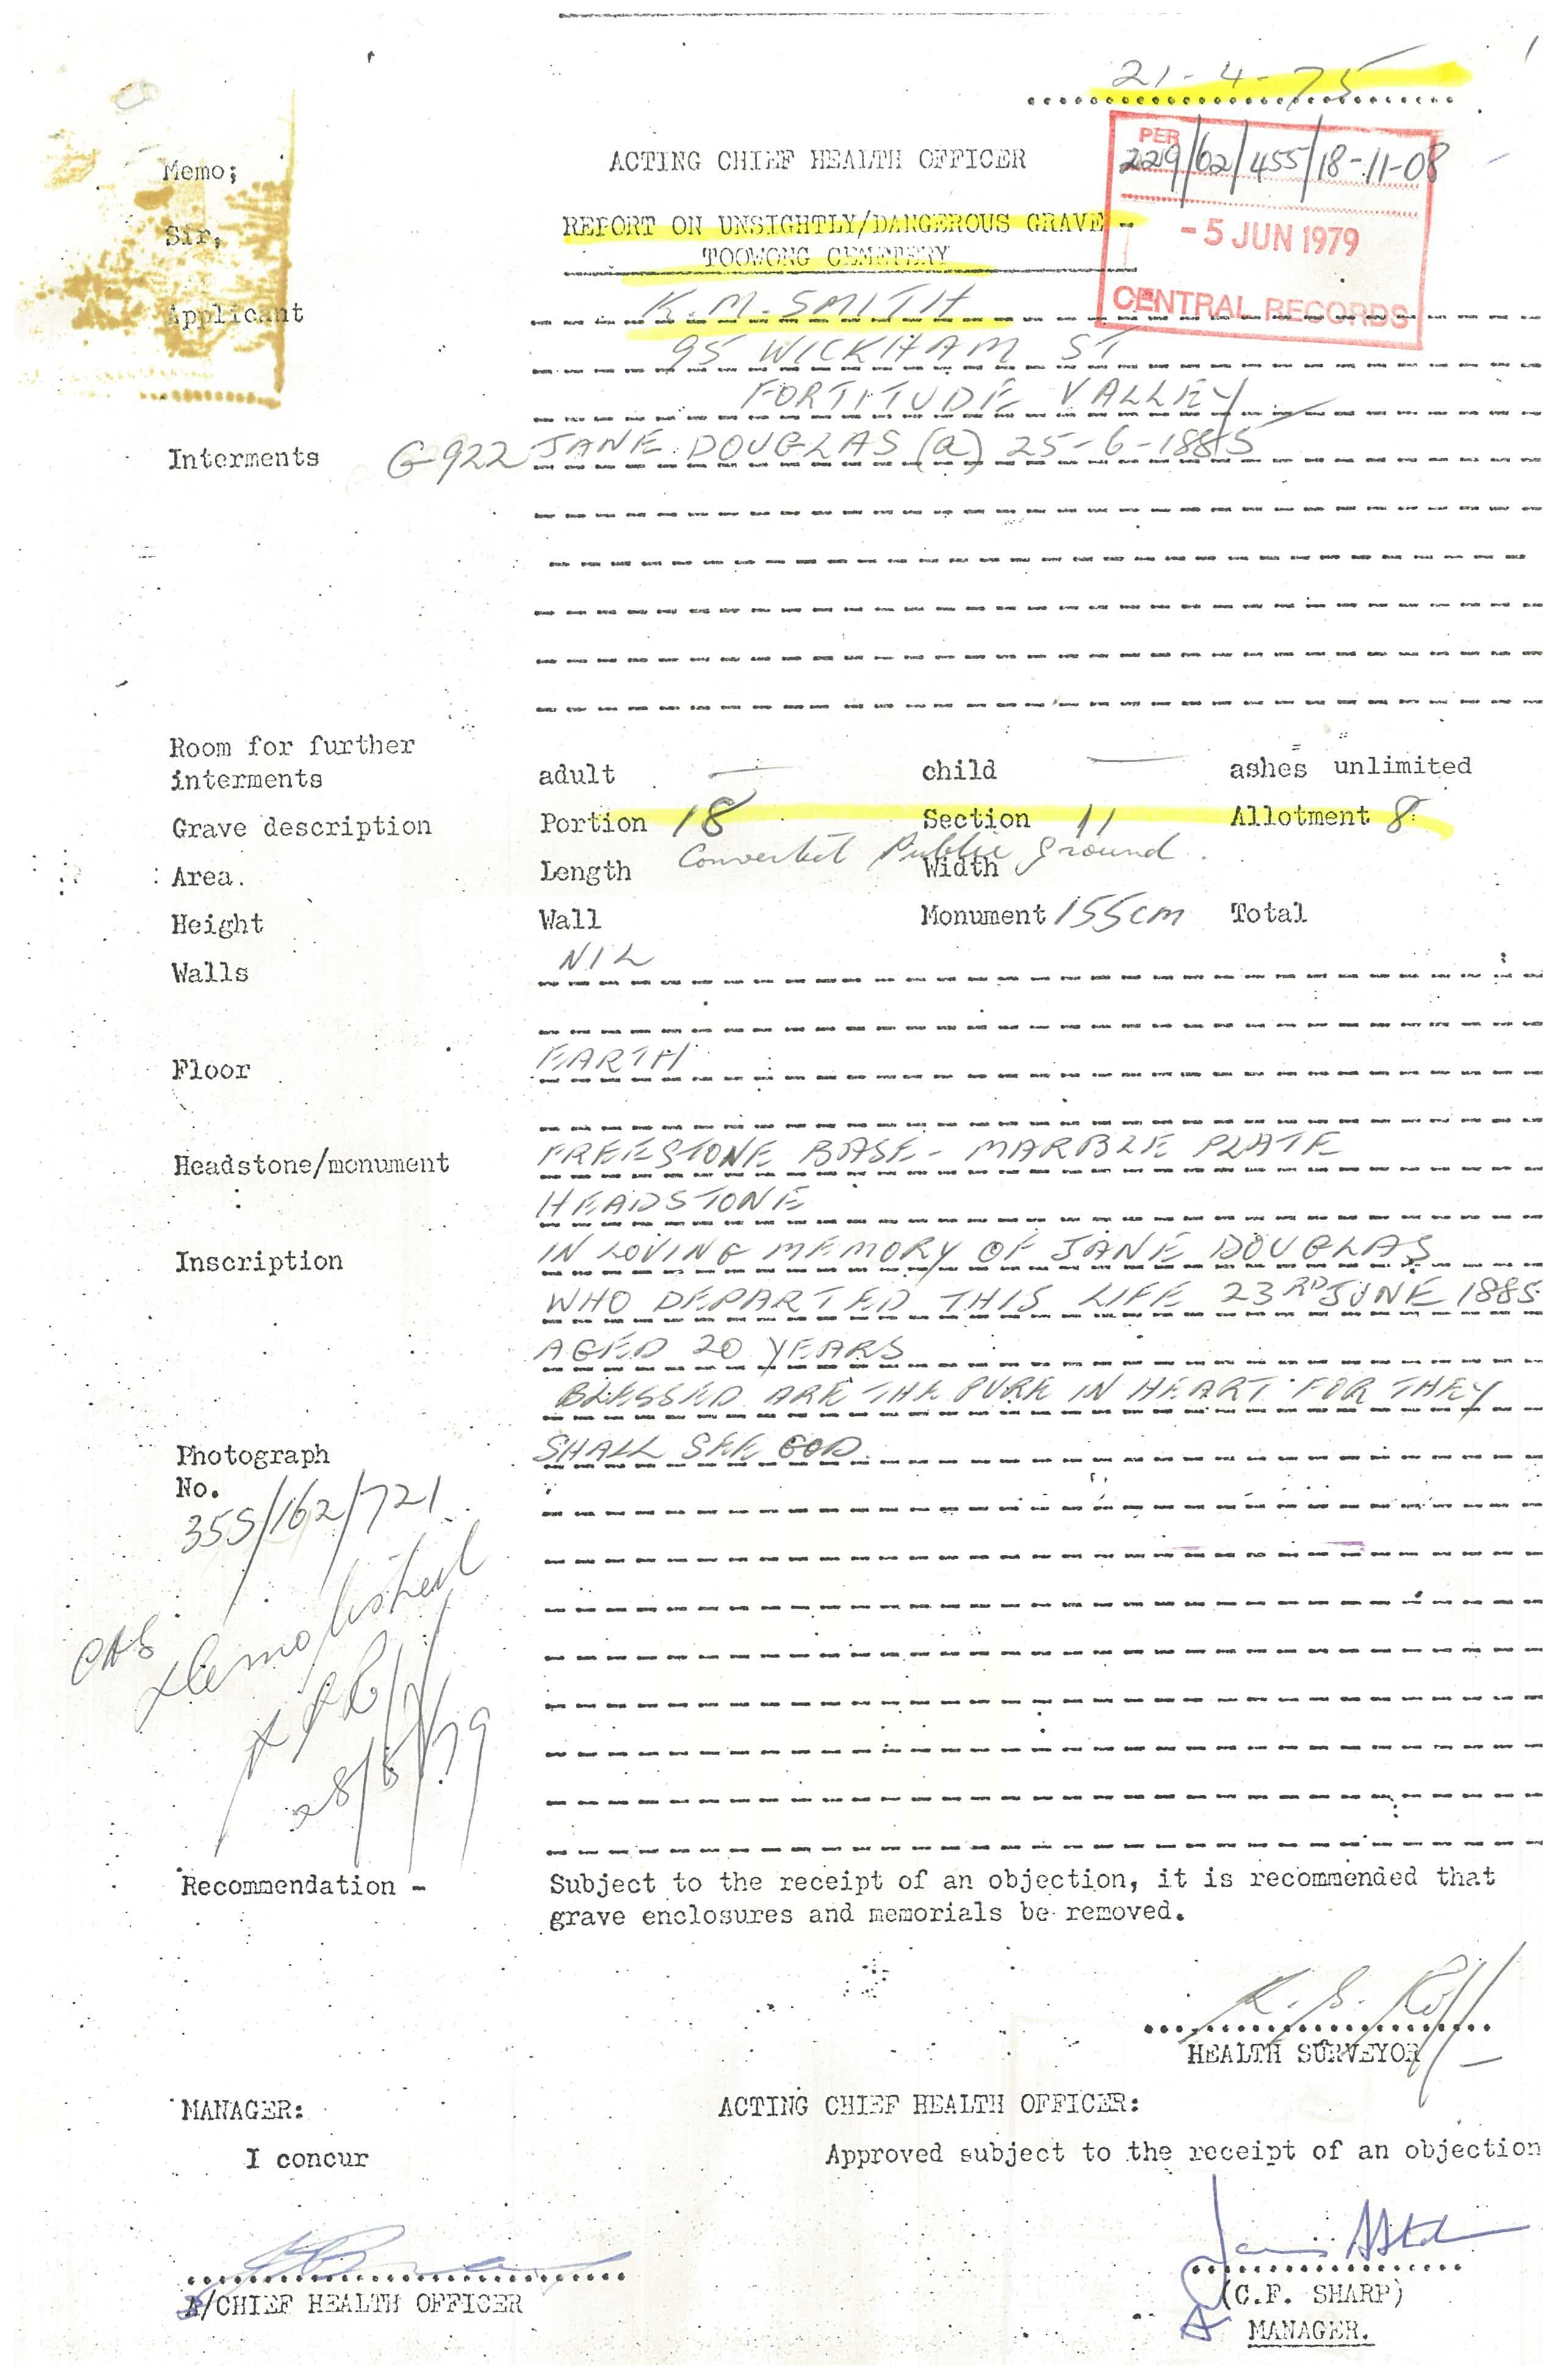 21-4-75
Memo;
ACTING CHIEF HEALTH OFFICER
PER
229/02/455/18-11-08
Sir,
REPORT ON UNSIGHTLY/DANGEROUS GRAVE -
TOOWONG CEMETERY
- 5 JUN 1979
CENTRAL RECORDS
Applicant K.M. SMITH
95 WICKHAM ST
FORTITUDE VALLEY
Interments G-922 JANE DOUGLAS (a) 25-6-1885
Room for further
interments adult — child — ashes unlimited
Grave description Portion 18 Section 11 Allotment 8
Public ground.
Area. Length Width
Height Wall Monument 155cm Total
Walls NIL
Floor EARTH
Headstone/monument FREESTONE BASE - MARBLE PLATE
HEADSTONE
Inscription IN LOVING MEMORY OF JANE DOUGLAS
WHO DEPARTED THIS LIFE 23RD JUNE 1885
AGED 20 YEARS
BLESSED ARE THE PURE IN HEART FOR THEY
SHALL SEE GOD.
Photograph
No.
355/162/721
demolished
Recommendation - Subject to the receipt of an objection, it is recommended that
grave enclosures and memorials be removed.
HEALTH SURVEYOR
MANAGER: ACTING CHIEF HEALTH OFFICER:
I concur Approved subject to the receipt of an objection
A/CHIEF HEALTH OFFICER
(C.F. SHARP)
MANAGER.